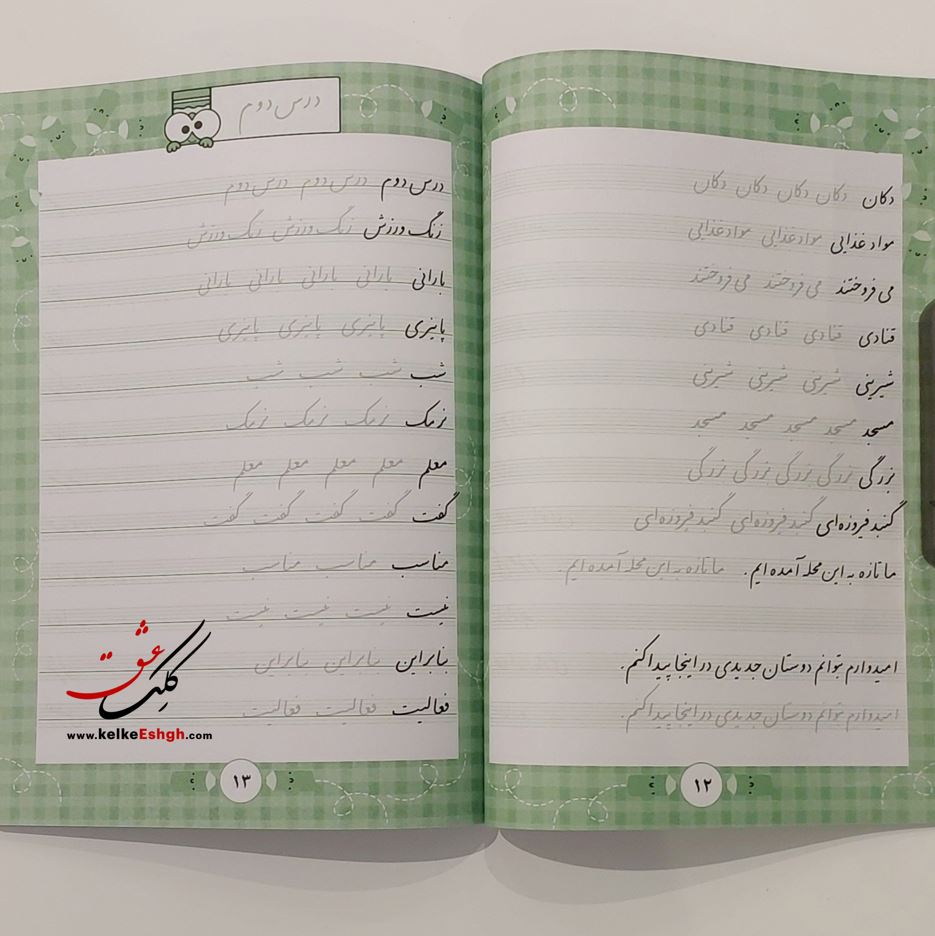 دکان دکان دکان دکان دکان
مواد غذایی مواد غذایی مواد غذایی
می فروختند می فروختند می فروختند
قنادی قنادی قنادی قنادی
شیرینی شیرینی شیرینی شیرینی
مسجد مسجد مسجد مسجد مسجد
بزرگی بزرگی بزرگی بزرگی بزرگی
گنبد فیروزه‌ای گنبد فیروزه‌ای گنبد فیروزه‌ای
ما تازه به این محله آمده ایم. ما تازه به این محله آمده ایم.
امیدوارم بتوانم دوستان جدیدی در اینجا پیدا کنم.
امیدوارم بتوانم دوستان جدیدی در اینجا پیدا کنم.
۱۲
درس دوم
درس دوم درس دوم درس دوم
زنگ ورزش زنگ ورزش زنگ ورزش
بارانی بارانی بارانی بارانی بارانی
پاییزی پاییزی پاییزی پاییزی
شب شب شب شب
نرمک نرمک نرمک نرمک
معلم معلم معلم معلم معلم
گفت گفت گفت گفت گفت
مناسب مناسب مناسب
نیست نیست نیست نیست
بنابراین بنابراین بنابراین
فعالیت فعالیت فعالیت
کلک عشق
www.kelkeEshgh.com
۱۳